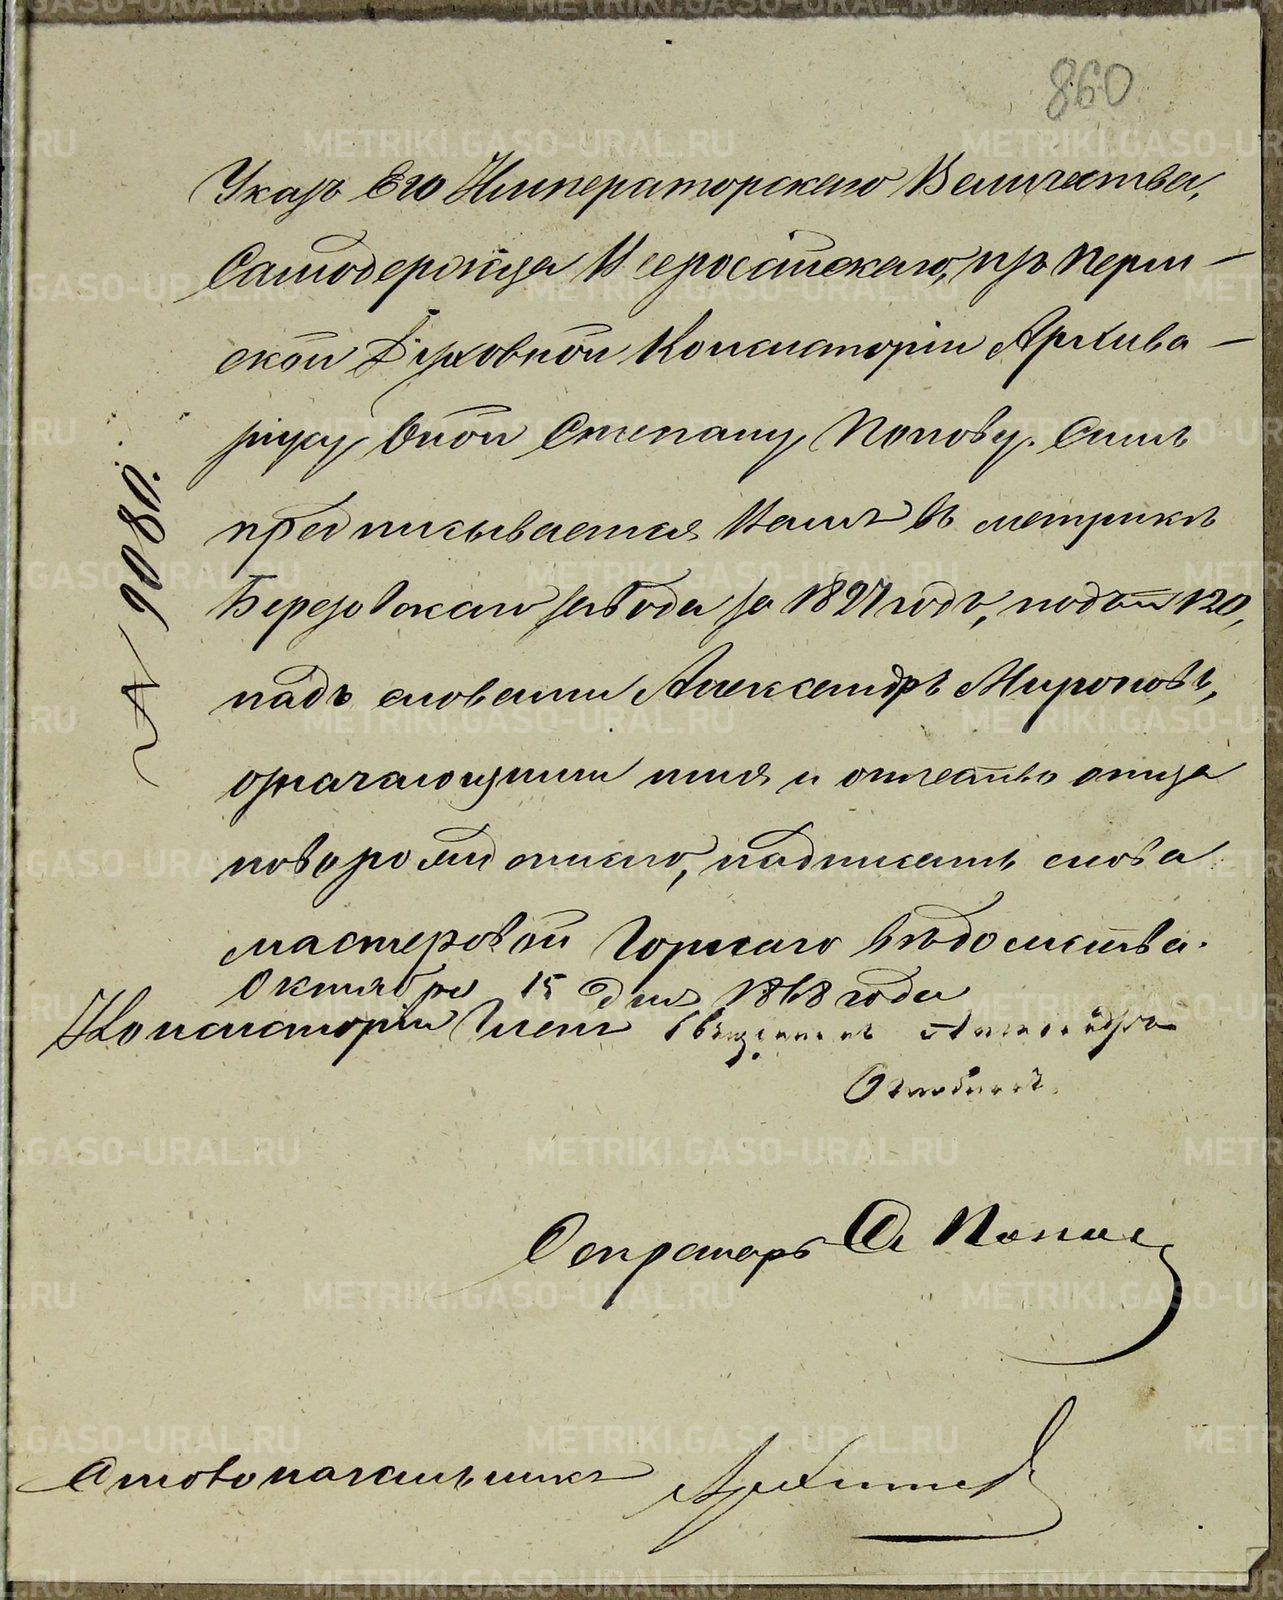 860
Указъ Его Императорскаго Величества,
Самодержца Всеросійскаго, изъ Перм-
ской Духовной Консисторіи Архива-
ріусу Оной Степану Попову. Симъ
предписывается Вамъ въ метрикѣ
Березовскаго завода за 1827 годъ, подъ № 120,
надъ словами Александръ Мироновъ,
означающими имя и отчество отца
новорожденнаго, надписать слова
мастеровой Горнаго вѣдомства.
Октября 15 дня 1868 года
№ 9080.
Консисторіи Членъ Священникъ Александръ
Секретарь А Попов
Столоначальникъ
METRIKI.GASO-URAL.RU